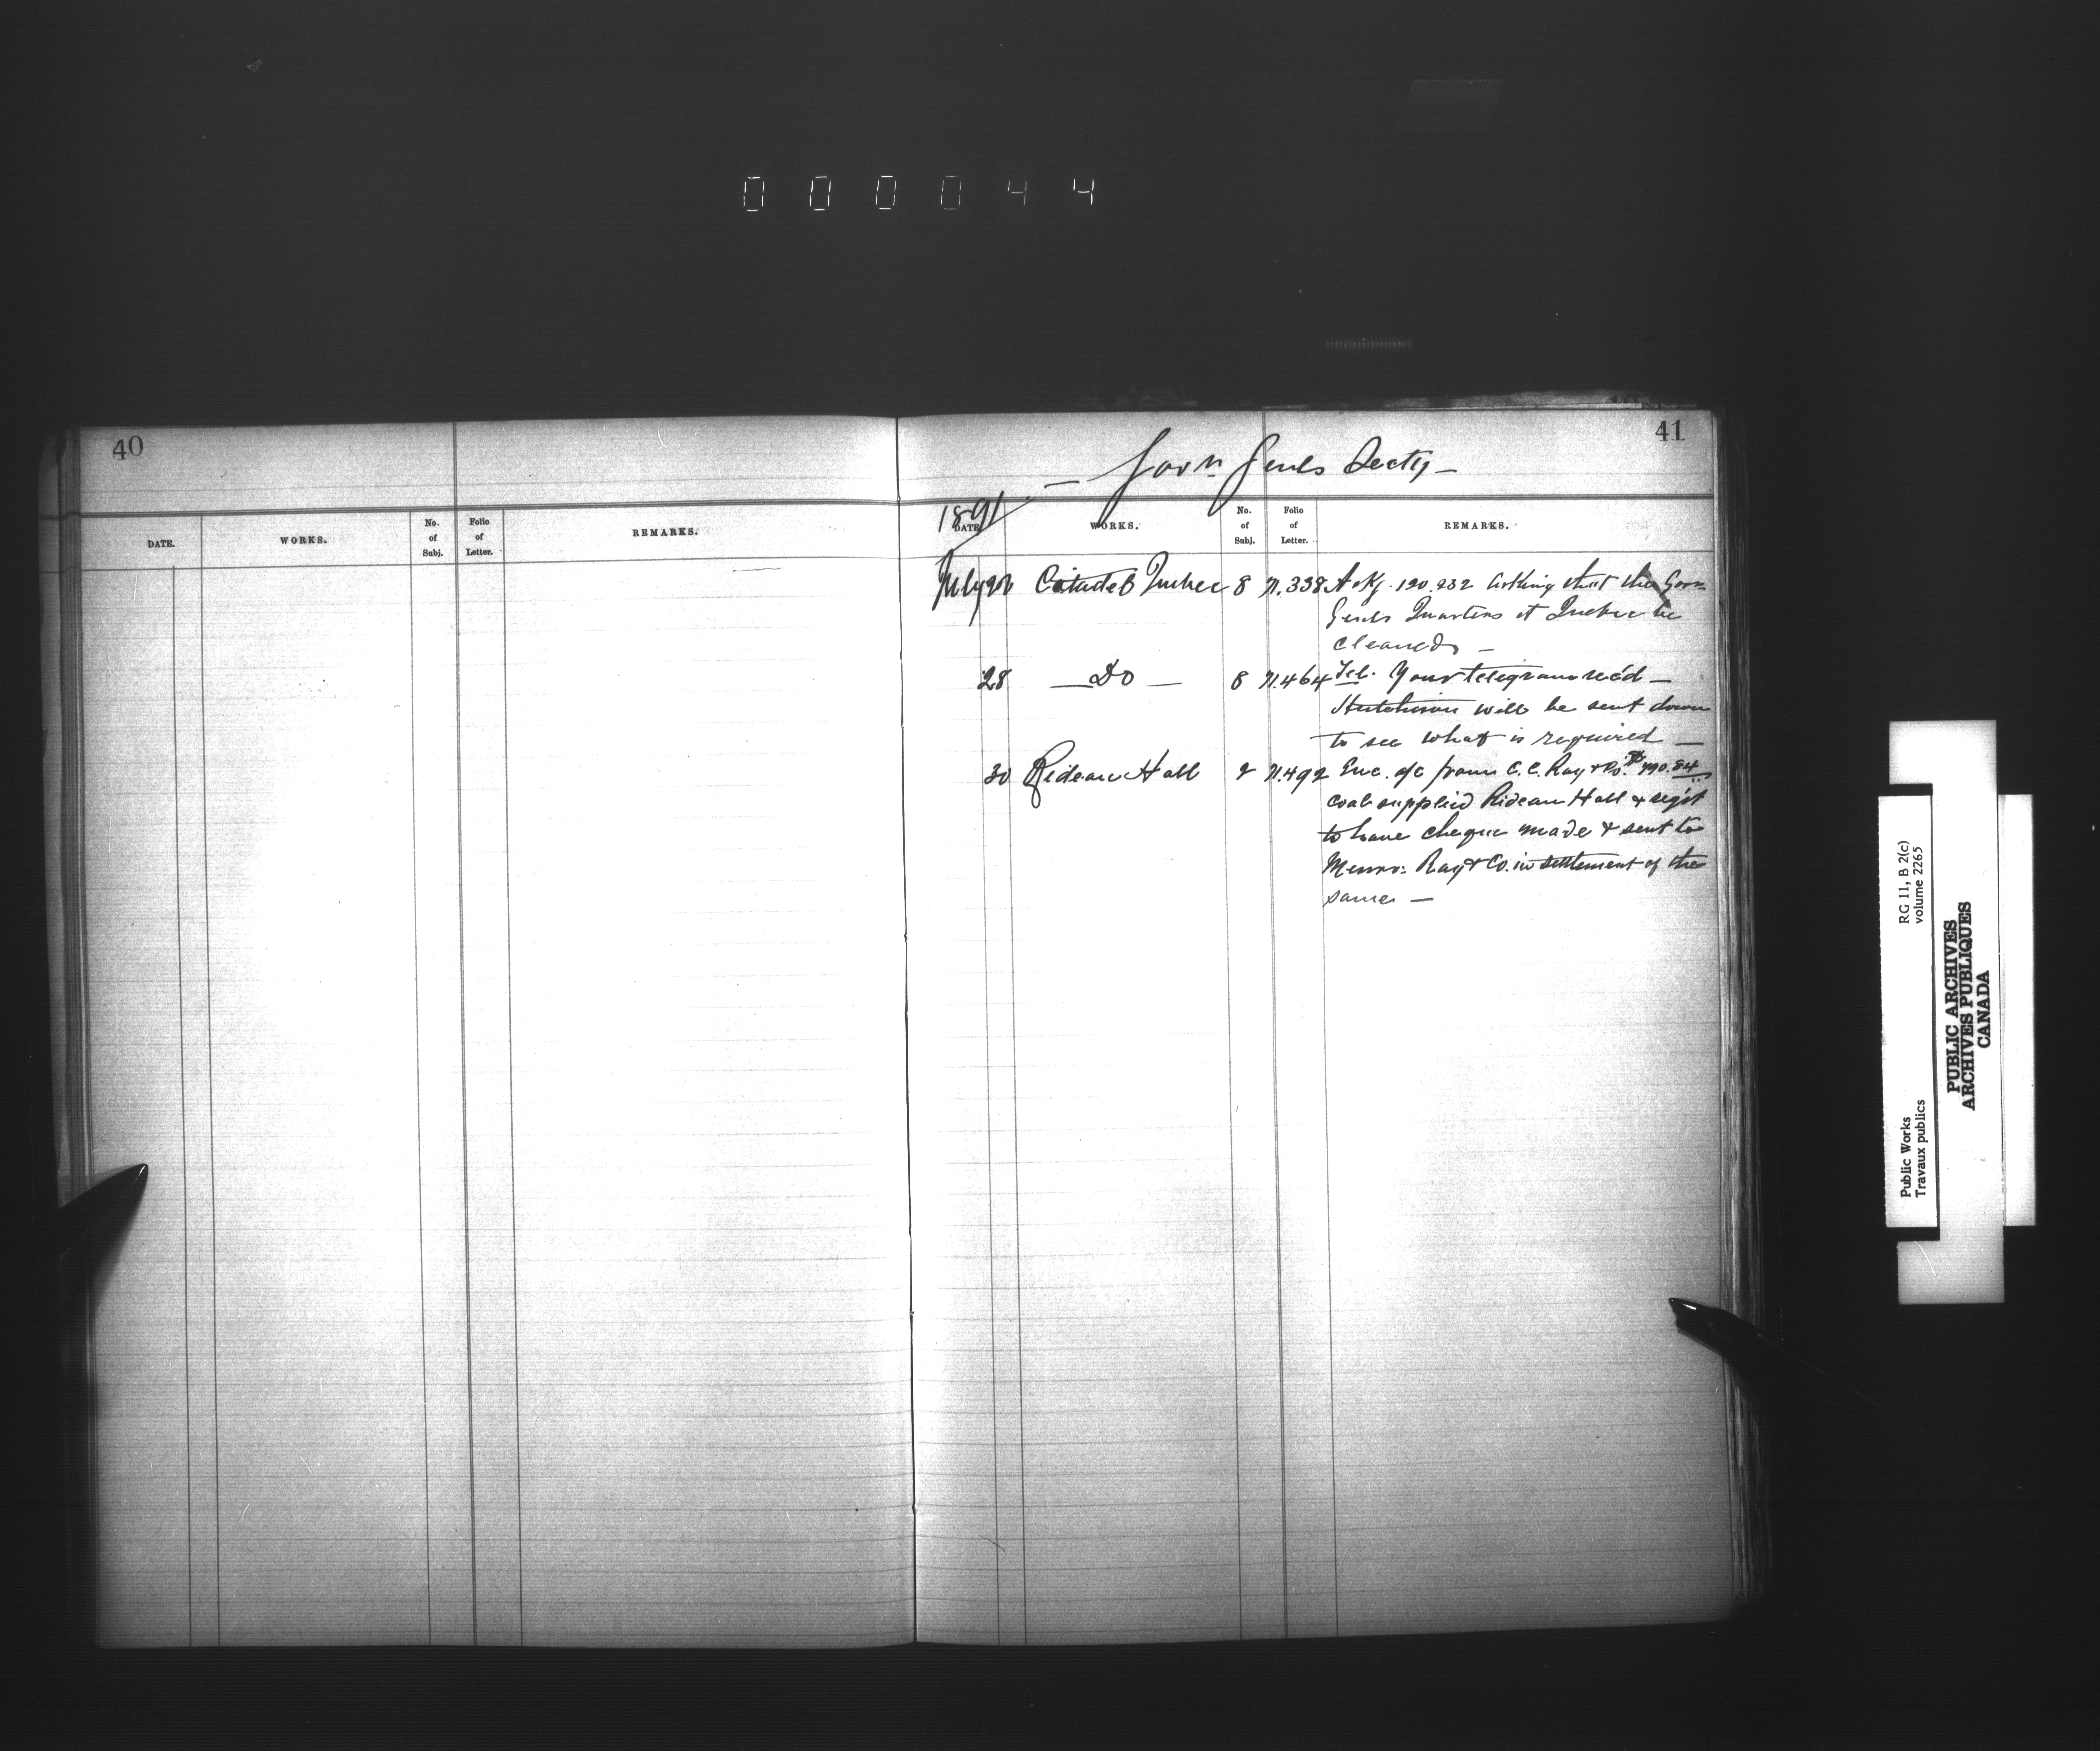 000044
40
DATE. WORKS. No. of Subj. Folio of Letter. REMARKS.
41
— Govr. Genls Secty —
1891
DATE WORKS. No. of Subj. Folio of Letter. REMARKS.
July 22 Citadel Quebec 8 N.338 Ackg. 120.232 asking that the Govr.
Genls Quarters at Quebec be
cleaned —
28 — Do — 8 N.464 Tel. Your telegram rec'd —
Hutchison will be sent down
to see what is required —
30 Rideau Hall 2 N.492 Enc. a/c from C.C. Ray & Co. $790.84
coal supplied Rideau Hall & reqst
to have cheque made & sent to
Messrs: Ray & Co. in settlement of the
same —
Public Works RG 11, B 2(c)
Travaux publics volume 2265
PUBLIC ARCHIVES
ARCHIVES PUBLIQUES
CANADA